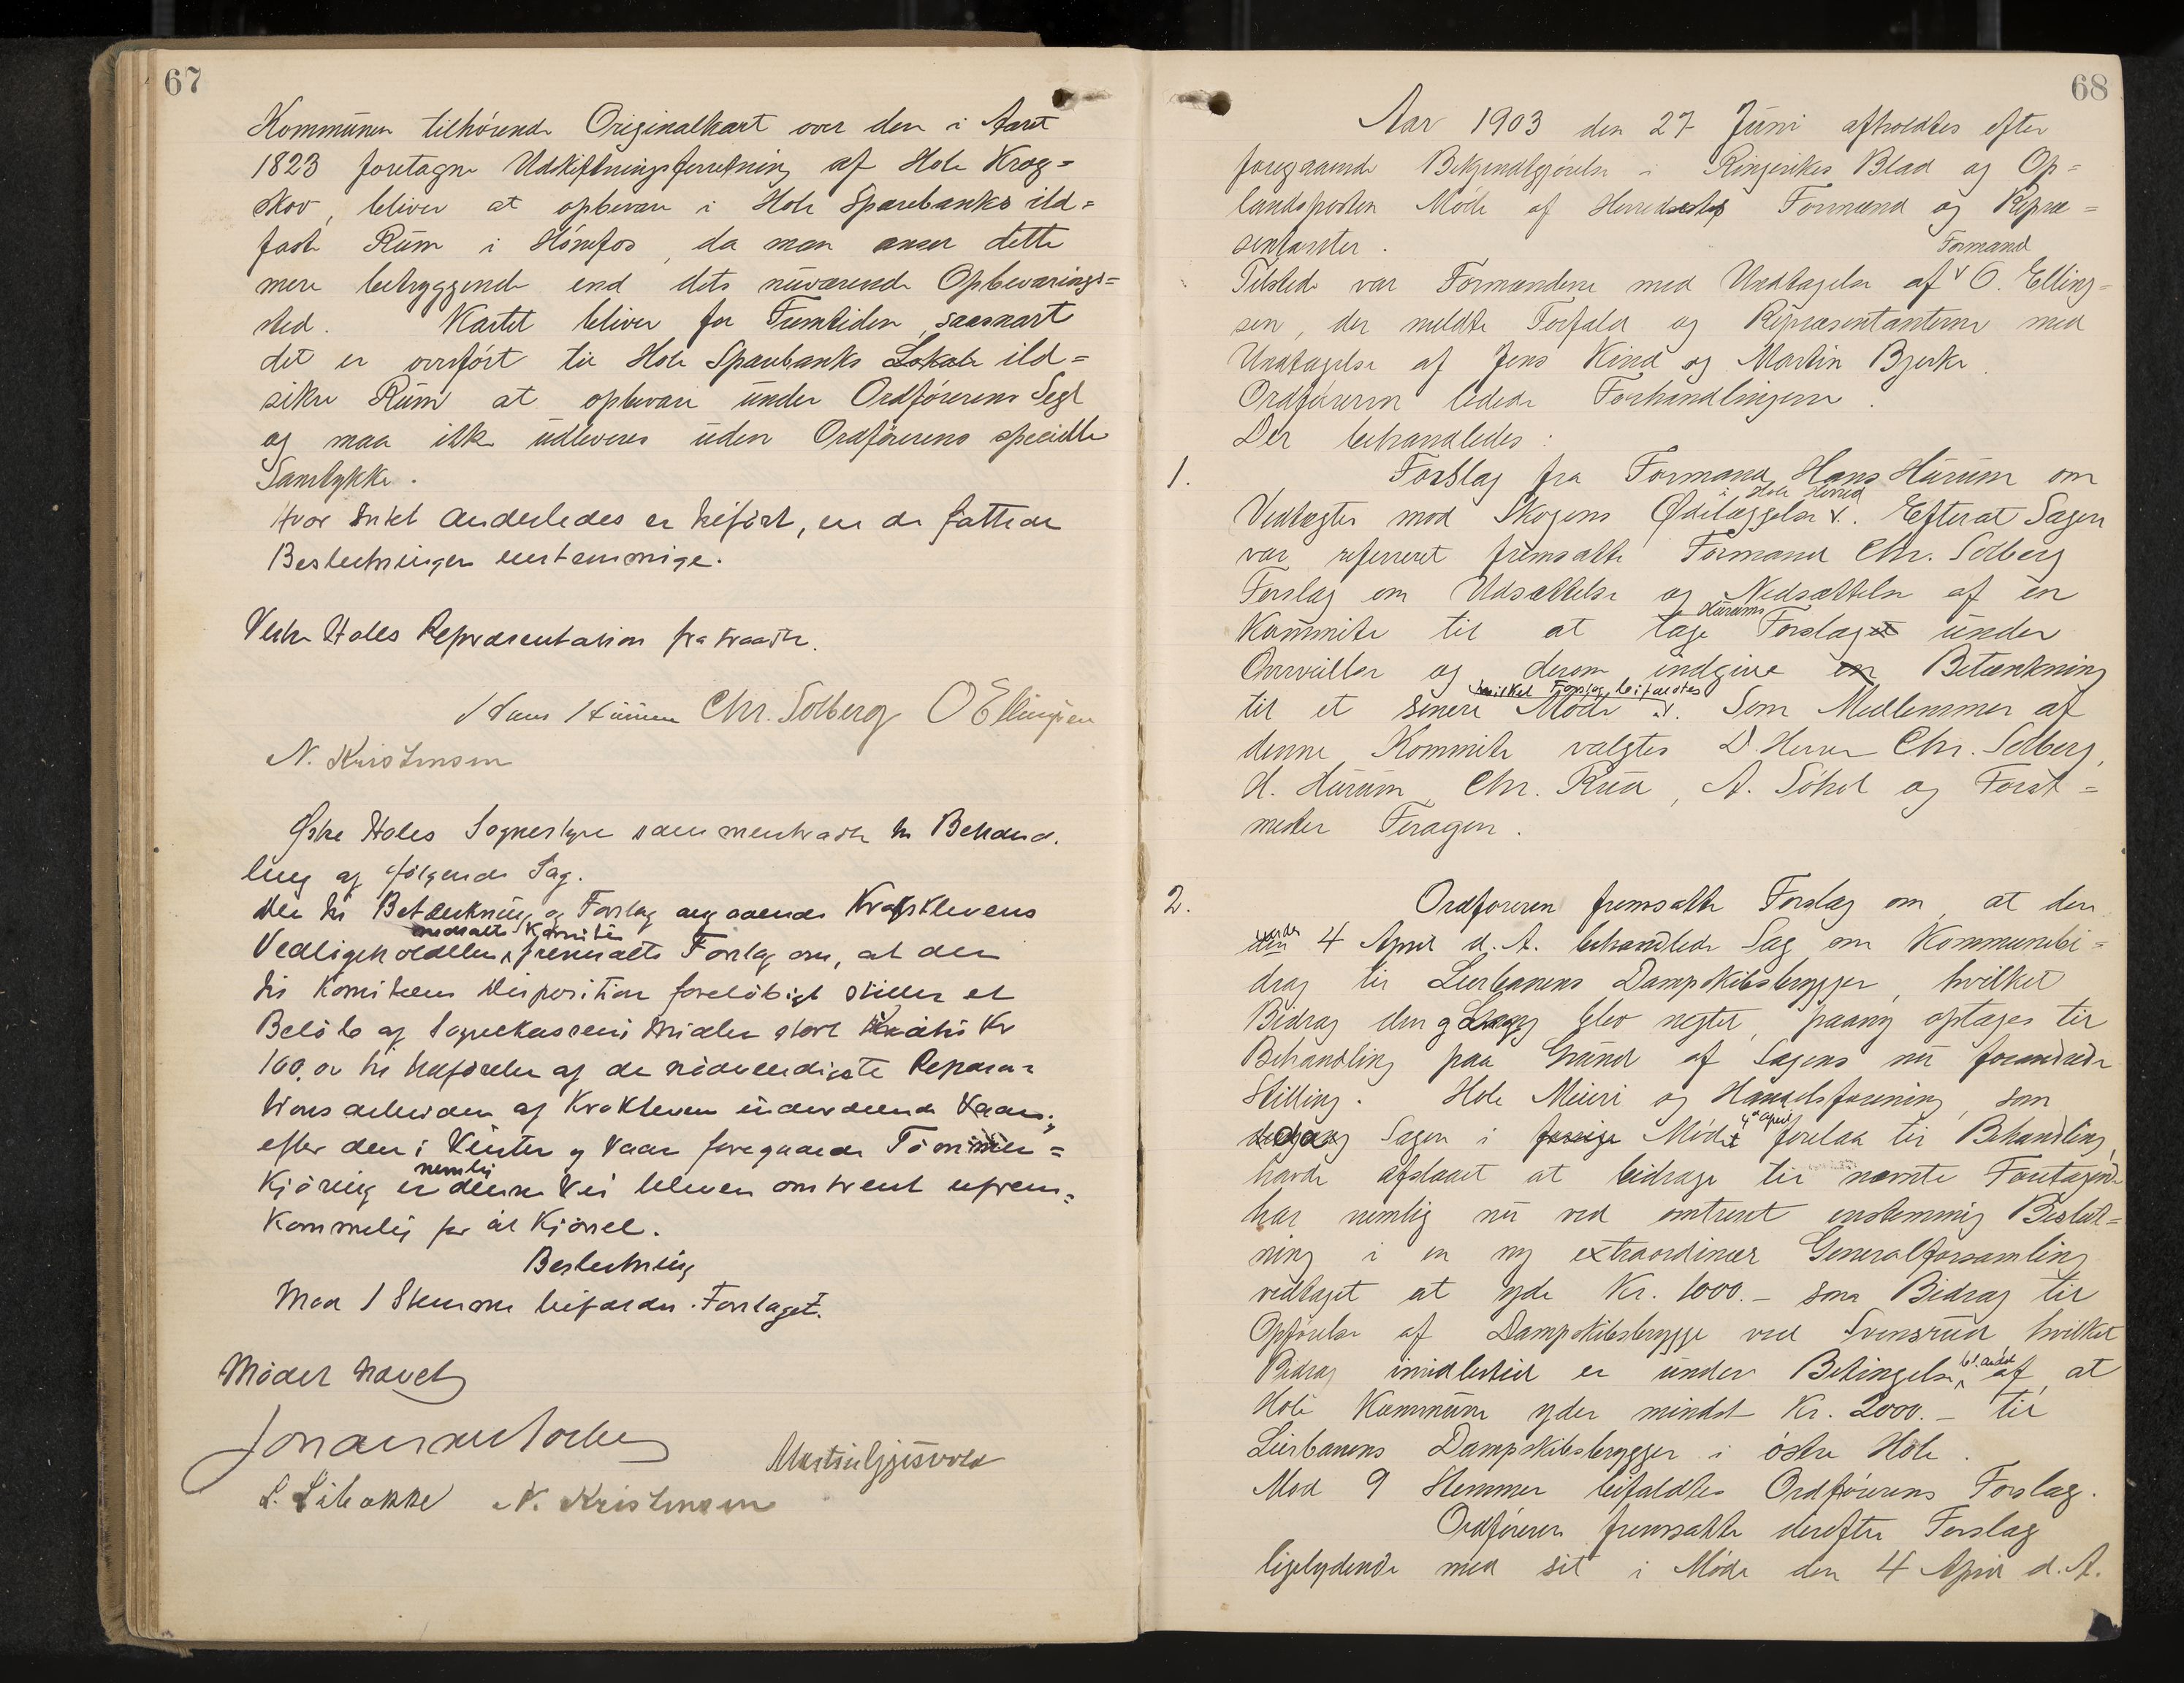 67
Kommunen tilhørende Originalkart over den i Aaret
1823 foretagne Udskiftningsforretning af Hole Krog=
skov, bliver at opbevare i Hole Sparebanks ild=
faste Rum i Hønefos, da man anser dette
mere betryggende end dets nuværende Opbevarings=
sted. Kartet bliver for Fremtiden, saasnart
det er overført til Hole Sparebanks Lokale ild=
sikre Rum at opbevare under Ordførerens Segl
og maa ikke udleveres uden Ordførerens specielle
Samtykke.
Hvor Intet anderledes er tilført, er de fattede
Beslutninger enstemmige.
Vestre Holes Repræsentation fratraadte.
Hans Hurum Chr. Solberg O Ellingsen
N. Kristensen
Østre Holes Sognestyre sammentraadte til Behand.
ling af følgende Sag.
Den til Betænkning og Forslag angaaende Krokklevens
nedsatte Komite
Vedligeholdelse fremsatte Forslag om, at der
til Komiteens Disposition foreløbigt stilles et
Beløb af Sognekassens Midler stort Kr
100,00 til Udførelse af de nødvendigste Repara=
tionsarbeider af Krokkleven indeværende Vaar;
efter den i Vinter og Vaar foregaaede Tømmer=
nemlig
Kjøring er denne Vei bleven omtrent ufrem=
kommelig for al Kjørsel.
Beslutning
Mod 1 Stemme bifaldes Forslaget.
Mødet hævet
N. Kristensen
68
Aar 1903 den 27 Juni afholdtes efter
foregaaende Bekjendtgjørelse i Ringerikes Blad og Op=
landsposten Møde af Herredets Formænd og Repræ=
sentanter.
Formand
Tilstede var Formændene med Undtagelse af O. Elling=
sen, der meldte Forfald og Repræsentanterne med
Undtagelse af Jens Kind og Martin Bjerke.
Ordføreren ledede Forhandlingerne.
Der behandledes:
1. Forslag fra Formand Hans Hurum om
i Hole Herred
Vedtægter mod Skogens Ødelæggelse. Efterat Sagen
var refereret fremsatte Formand Chr. Solberg
Forslag om Udsættelse og Nedsættelse af en
Hurums
Kommite til at tage Forslaget under
Overveielse og derom indgive en Betænkning
hvilket Forslag bifaldtes
til et senere Møde. Som Medlemmer af
denne Kommite valgtes D'Herrer Chr. Solberg,
H. Hurum, Chr. Rud, A. Søhol og Forst=
mester Feragen.
2. Ordføreren fremsatte Forslag om, at den
under
den 4 April d. A. behandlede Sag om Kommunebi=
drag til Lierbanens Dampskibsbrygger, hvilket
Bidrag dengang blev negtet, paany optages til
Behandling paa Grund af Sagens nu forandrede
Stilling. Hole Meieri og Handelsforening, som
4de April
dengang Sagen i forrige Møde forelaa til Behandling,
havde afslaaet at bidrage til nævnte Foretagende
har nemlig nu ved omtrent enstemmig Beslut=
ning i en ny extraordinær Generalforsamling
vedtaget at yde Kr. 1000.- som Bidrag til
Opførelse af Dampskibsbrygge ved Svensrud hvilket
bl. andet
Bidrag imidlertid er under Betingelse af, at
Hole Kommune yder mindst Kr. 2000.- til
Lierbanens Dampskibsbrygger i østre Hole.
Mod 9 Stemmer bifaldtes Ordførerens Forslag.
Ordføreren fremsatte derefter Forslag
ligelydende med sit i Møde den 4 April d. A.